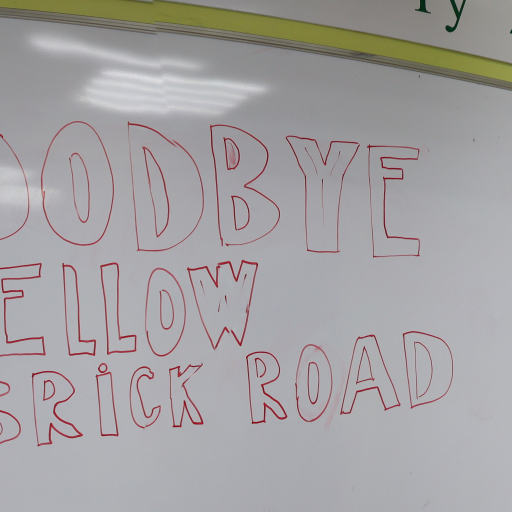 ry
OODBYE
ELLOW
BRiCK ROAD